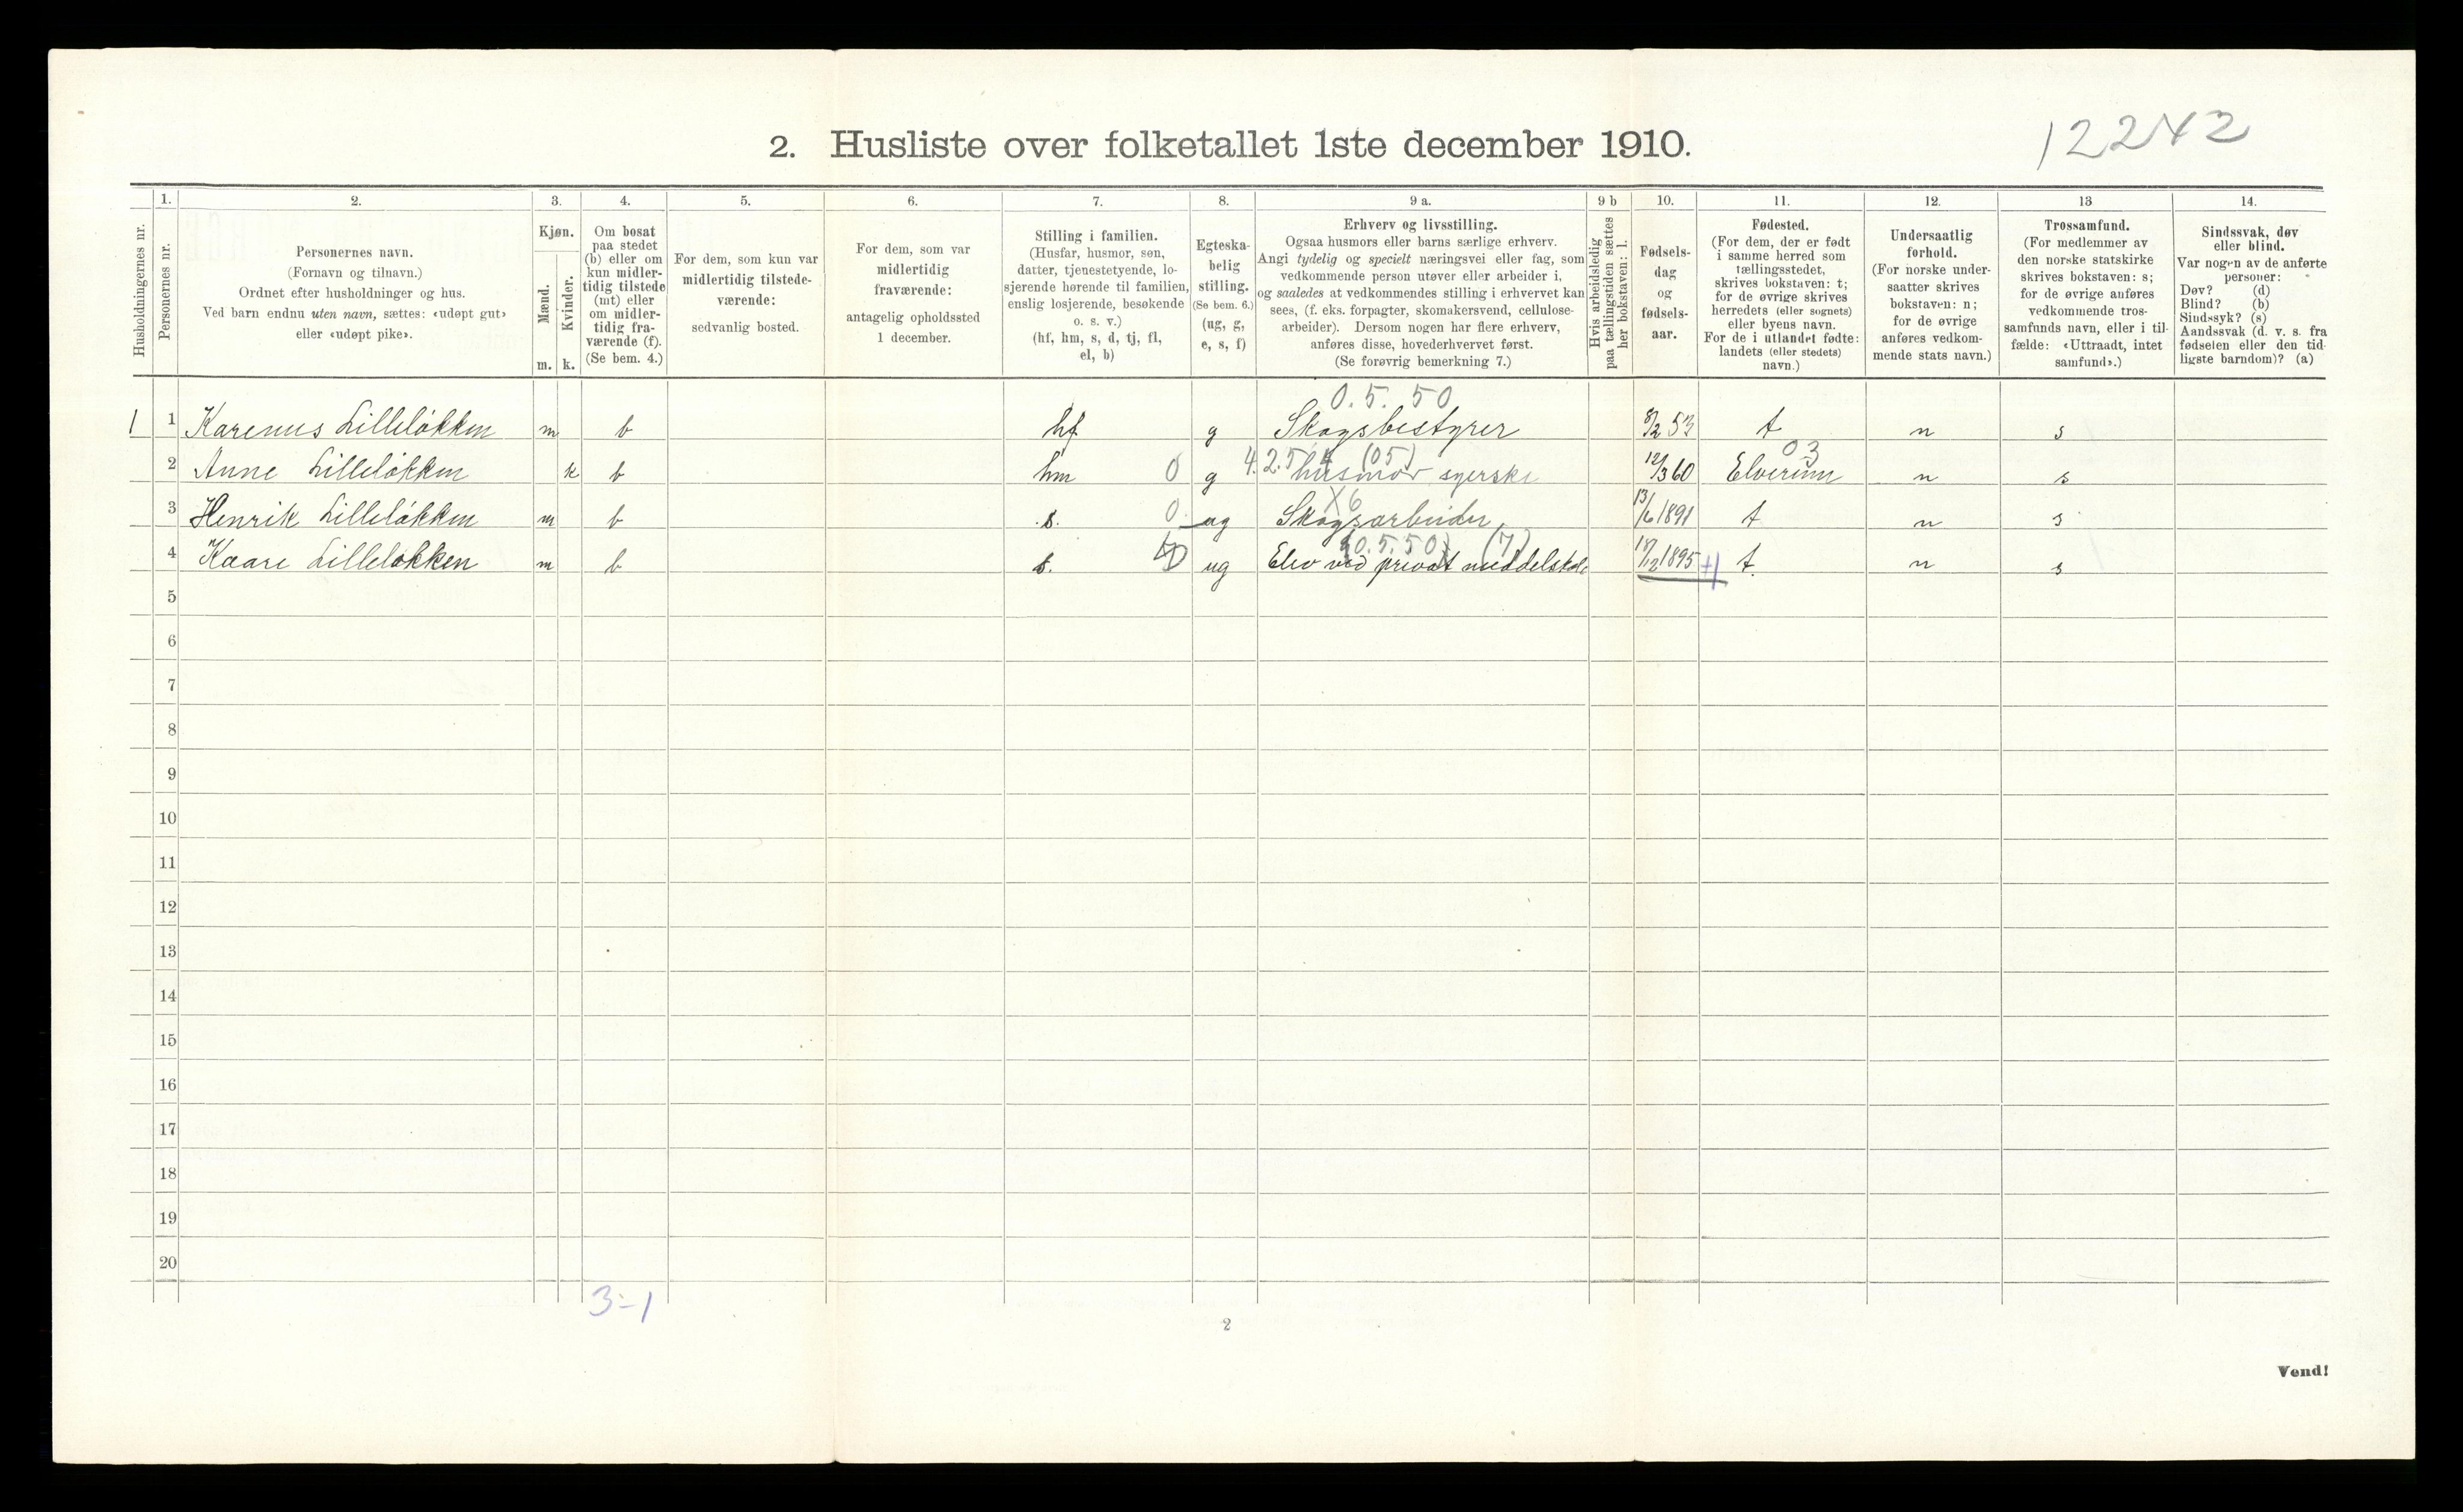 12242
2. Husliste over folketallet 1ste december 1910.
Husholdningernes nr.
1.
Personernes nr.
2.
Personernes navn.
(Fornavn og tilnavn.)
Ordnet efter husholdninger og hus.
Ved barn endnu uten navn, sættes: «udøpt gut»
eller «udøpt pike».
3.
Kjøn.
Mænd.
Kvinder.
m. k.
4.
Om bosat
paa stedet
(b) eller om
kun midler-
tidig tilstede
(mt) eller
om midler-
tidig fra-
værende (f).
(Se bem. 4.)
5.
For dem, som kun var
midlertidig tilstede-
værende:
sedvanlig bosted.
6.
For dem, som var
midlertidig
fraværende:
antagelig opholdssted
1 december.
7.
Stilling i familien.
(Husfar, husmor, søn,
datter, tjenestetyende, lo-
sjerende hørende til familien,
enslig losjerende, besøkende
o. s. v.)
(hf, hm, s, d, tj, fl,
el, b)
8.
Egteska-
belig
stilling.
(Se bem. 6.)
(ug, g,
e, s, f)
9 a.
Erhverv og livsstilling.
Ogsaa husmors eller barns særlige erhverv.
Angi tydelig og specielt næringsvei eller fag, som
vedkommende person utøver eller arbeider i,
og saaledes at vedkommendes stilling i erhvervet kan
sees, (f. eks. forpagter, skomakersvend, cellulose-
arbeider). Dersom nogen har flere erhverv,
anføres disse, hovederhvervet først.
(Se forøvrig bemerkning 7.)
9 b
Hvis arbeidsledig
paa tællingstiden sættes
her bokstaven: l.
10.
Fødsels-
dag
og
fødsels-
aar.
11.
Fødested.
(For dem, der er født
i samme herred som
tællingsstedet,
skrives bokstaven: t;
for de øvrige skrives
herredets (eller sognets)
eller byens navn.
For de i utlandet fødte:
landets (eller stedets)
navn.)
12.
Undersaatlig
forhold.
(For norske under-
saatter skrives
bokstaven: n;
for de øvrige
anføres vedkom-
mende stats navn.)
13
Trossamfund.
(For medlemmer av
den norske statskirke
skrives bokstaven: s;
for de øvrige anføres
vedkommende tros-
samfunds navn, eller i til-
fælde: «Uttraadt, intet
samfund».)
14.
Sindssvak, døv
eller blind.
Var nogen av de anførte
personer:
Døv? (d)
Blind? (b)
Sindssyk? (s)
Aandssvak (d. v. s. fra
fødselen eller den tid-
ligste barndom)? (a)
0.5.50
1 1 Karenus Lilleløkken m b hf g Skogsbestyrer 8/2 53 t n s
4.2.5 (05) 03
2 Anne Lilleløkken k b hm 0 g husmor syerske 12/3 60 Elverum n s
X6
3 Henrik Lilleløkken m b s. 0 ug Skogsarbeider 13/6 1891 t n s
(0.5.50) (7)
4 Kaare Lilleløkken m b s. ug Elev ved privat middelskole 18/12 1895 t n s
5
6
7
8
9
10
11
12
13
14
15
16
17
18
19
20
3-1
2
Vend!